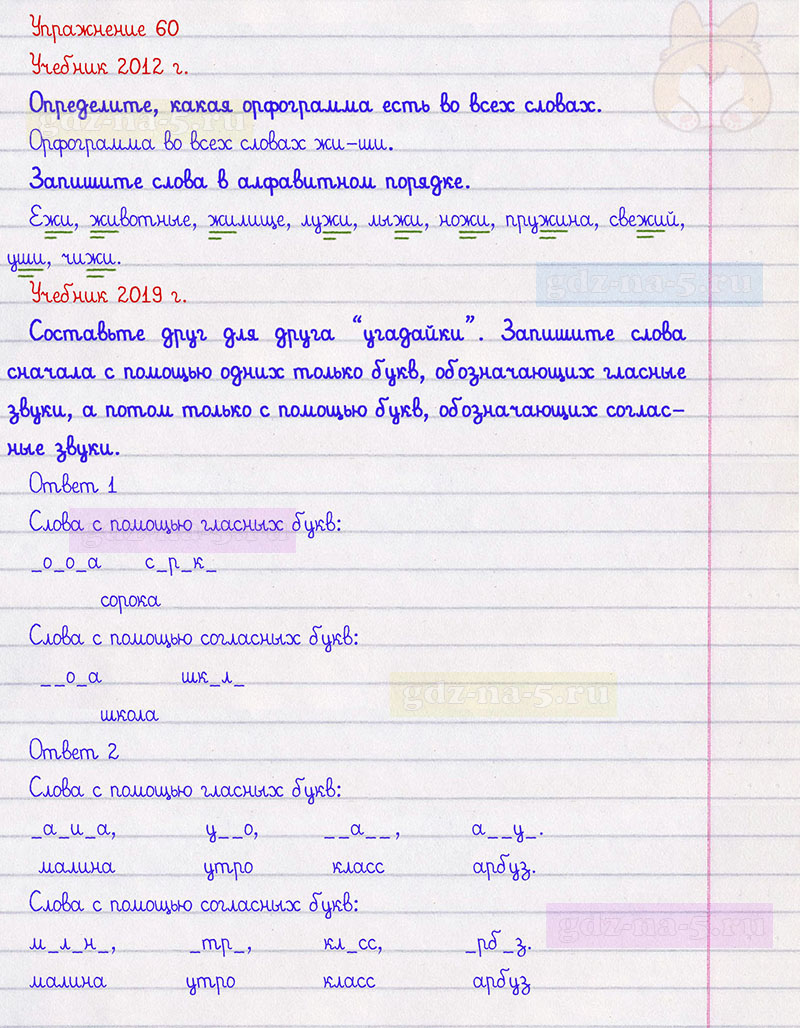 Упражнение 60
Учебник 2012 г.
Определите, какая орфограмма есть во всех словах.
gdz-na-5.ru
Орфограмма во всех словах жи-ши.
Запишите слова в алфавитном порядке.
Ежи, животные, жилище, лужи, лыжи, ножи, пружина, свежий,
уши, чижи.
gdz-na-5.ru
Учебник 2019 г.
Составьте друг для друга “угадайки”. Запишите слова
сначала с помощью одних только букв, обозначающих гласные
звуки, а потом только с помощью букв, обозначающих соглас-
ные звуки.
Ответ 1
Слова с помощью гласных букв:
gdz-na-5.ru
_о_о_а с_р_к_
сорока
Слова с помощью согласных букв:
__о_а шк_л_
gdz-na-5.ru
школа
Ответ 2
Слова с помощью гласных букв:
_а_и_а, у__о, __а__, а__у_.
малина утро класс арбуз.
Слова с помощью согласных букв:
gdz-na-5.ru
м_л_н_, _тр_, кл_сс, _рб_з.
малина утро класс арбуз